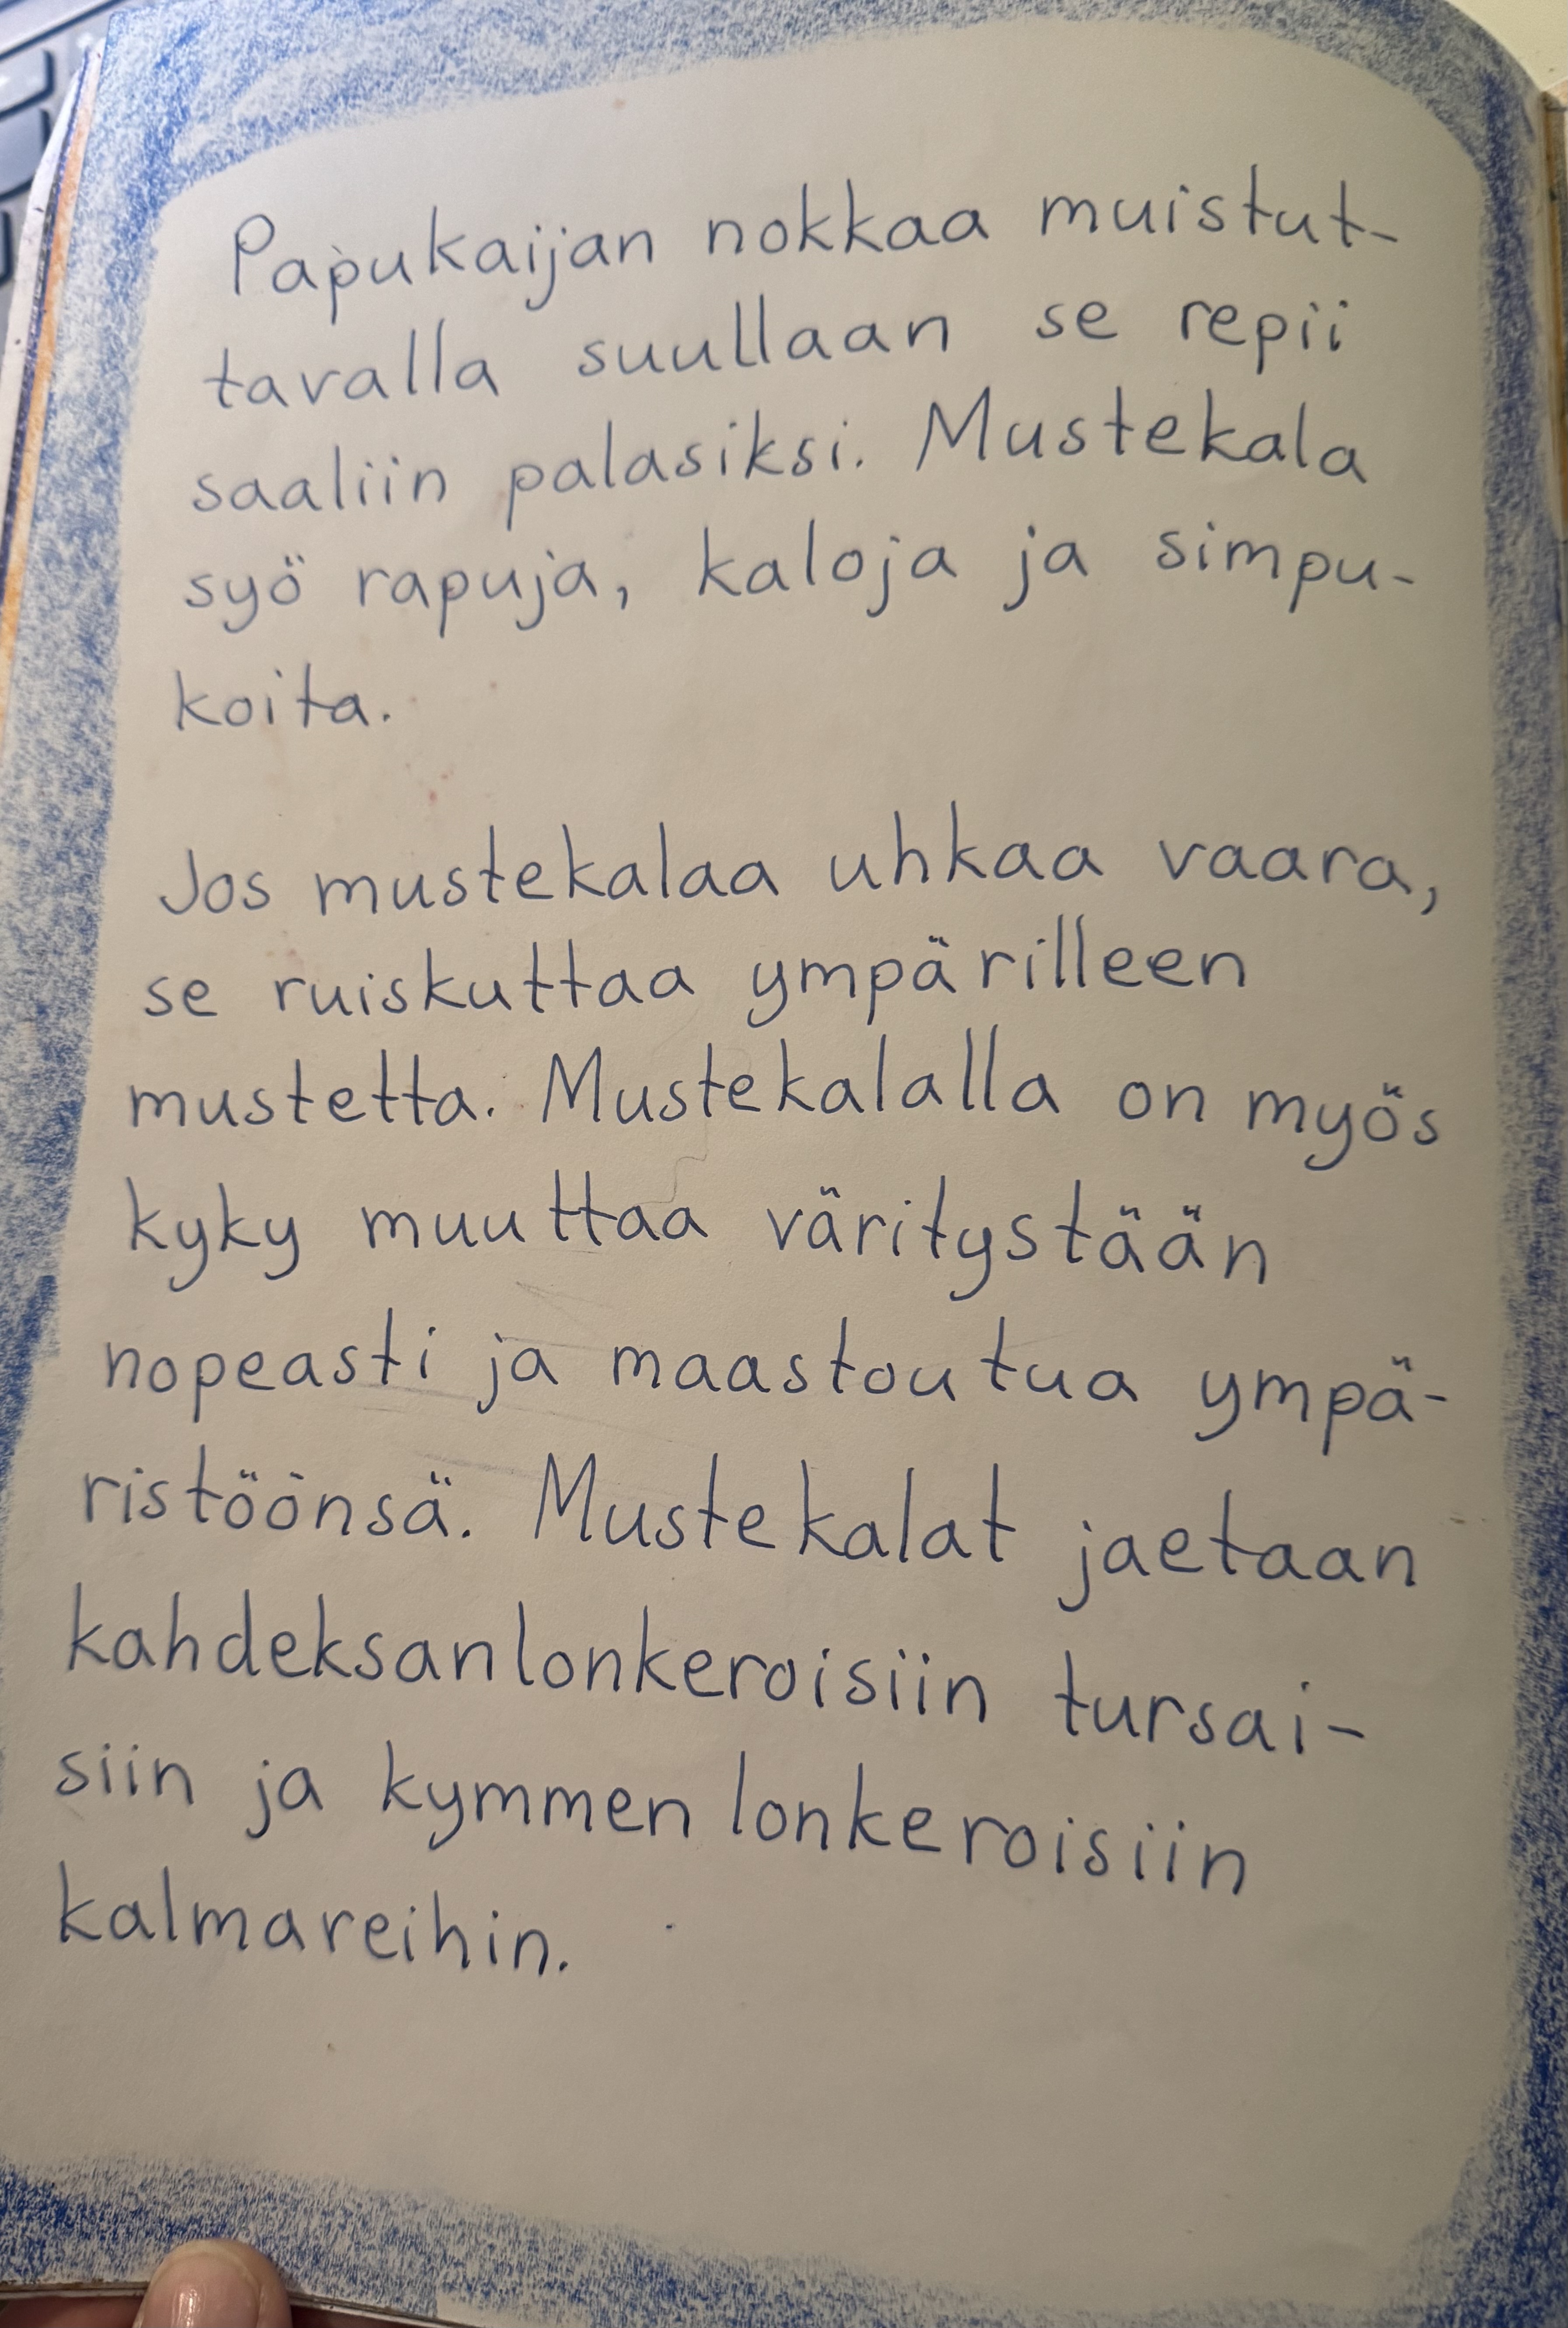 Papukaijan nokkaa muistut-
tavalla suullaan se repii
saaliin palasiksi. Mustekala
syö rapuja, kaloja ja simpu-
koita.
Jos mustekalaa uhkaa vaara,
se ruiskuttaa ympärilleen
mustetta. Mustekalalla on myös
kyky muuttaa väritystään
nopeasti ja maastoutua ympä-
ristöönsä. Mustekalat jaetaan
kahdeksanlonkeroisiin tursai-
siin ja kymmenlonkeroisiin
kalmareihin.